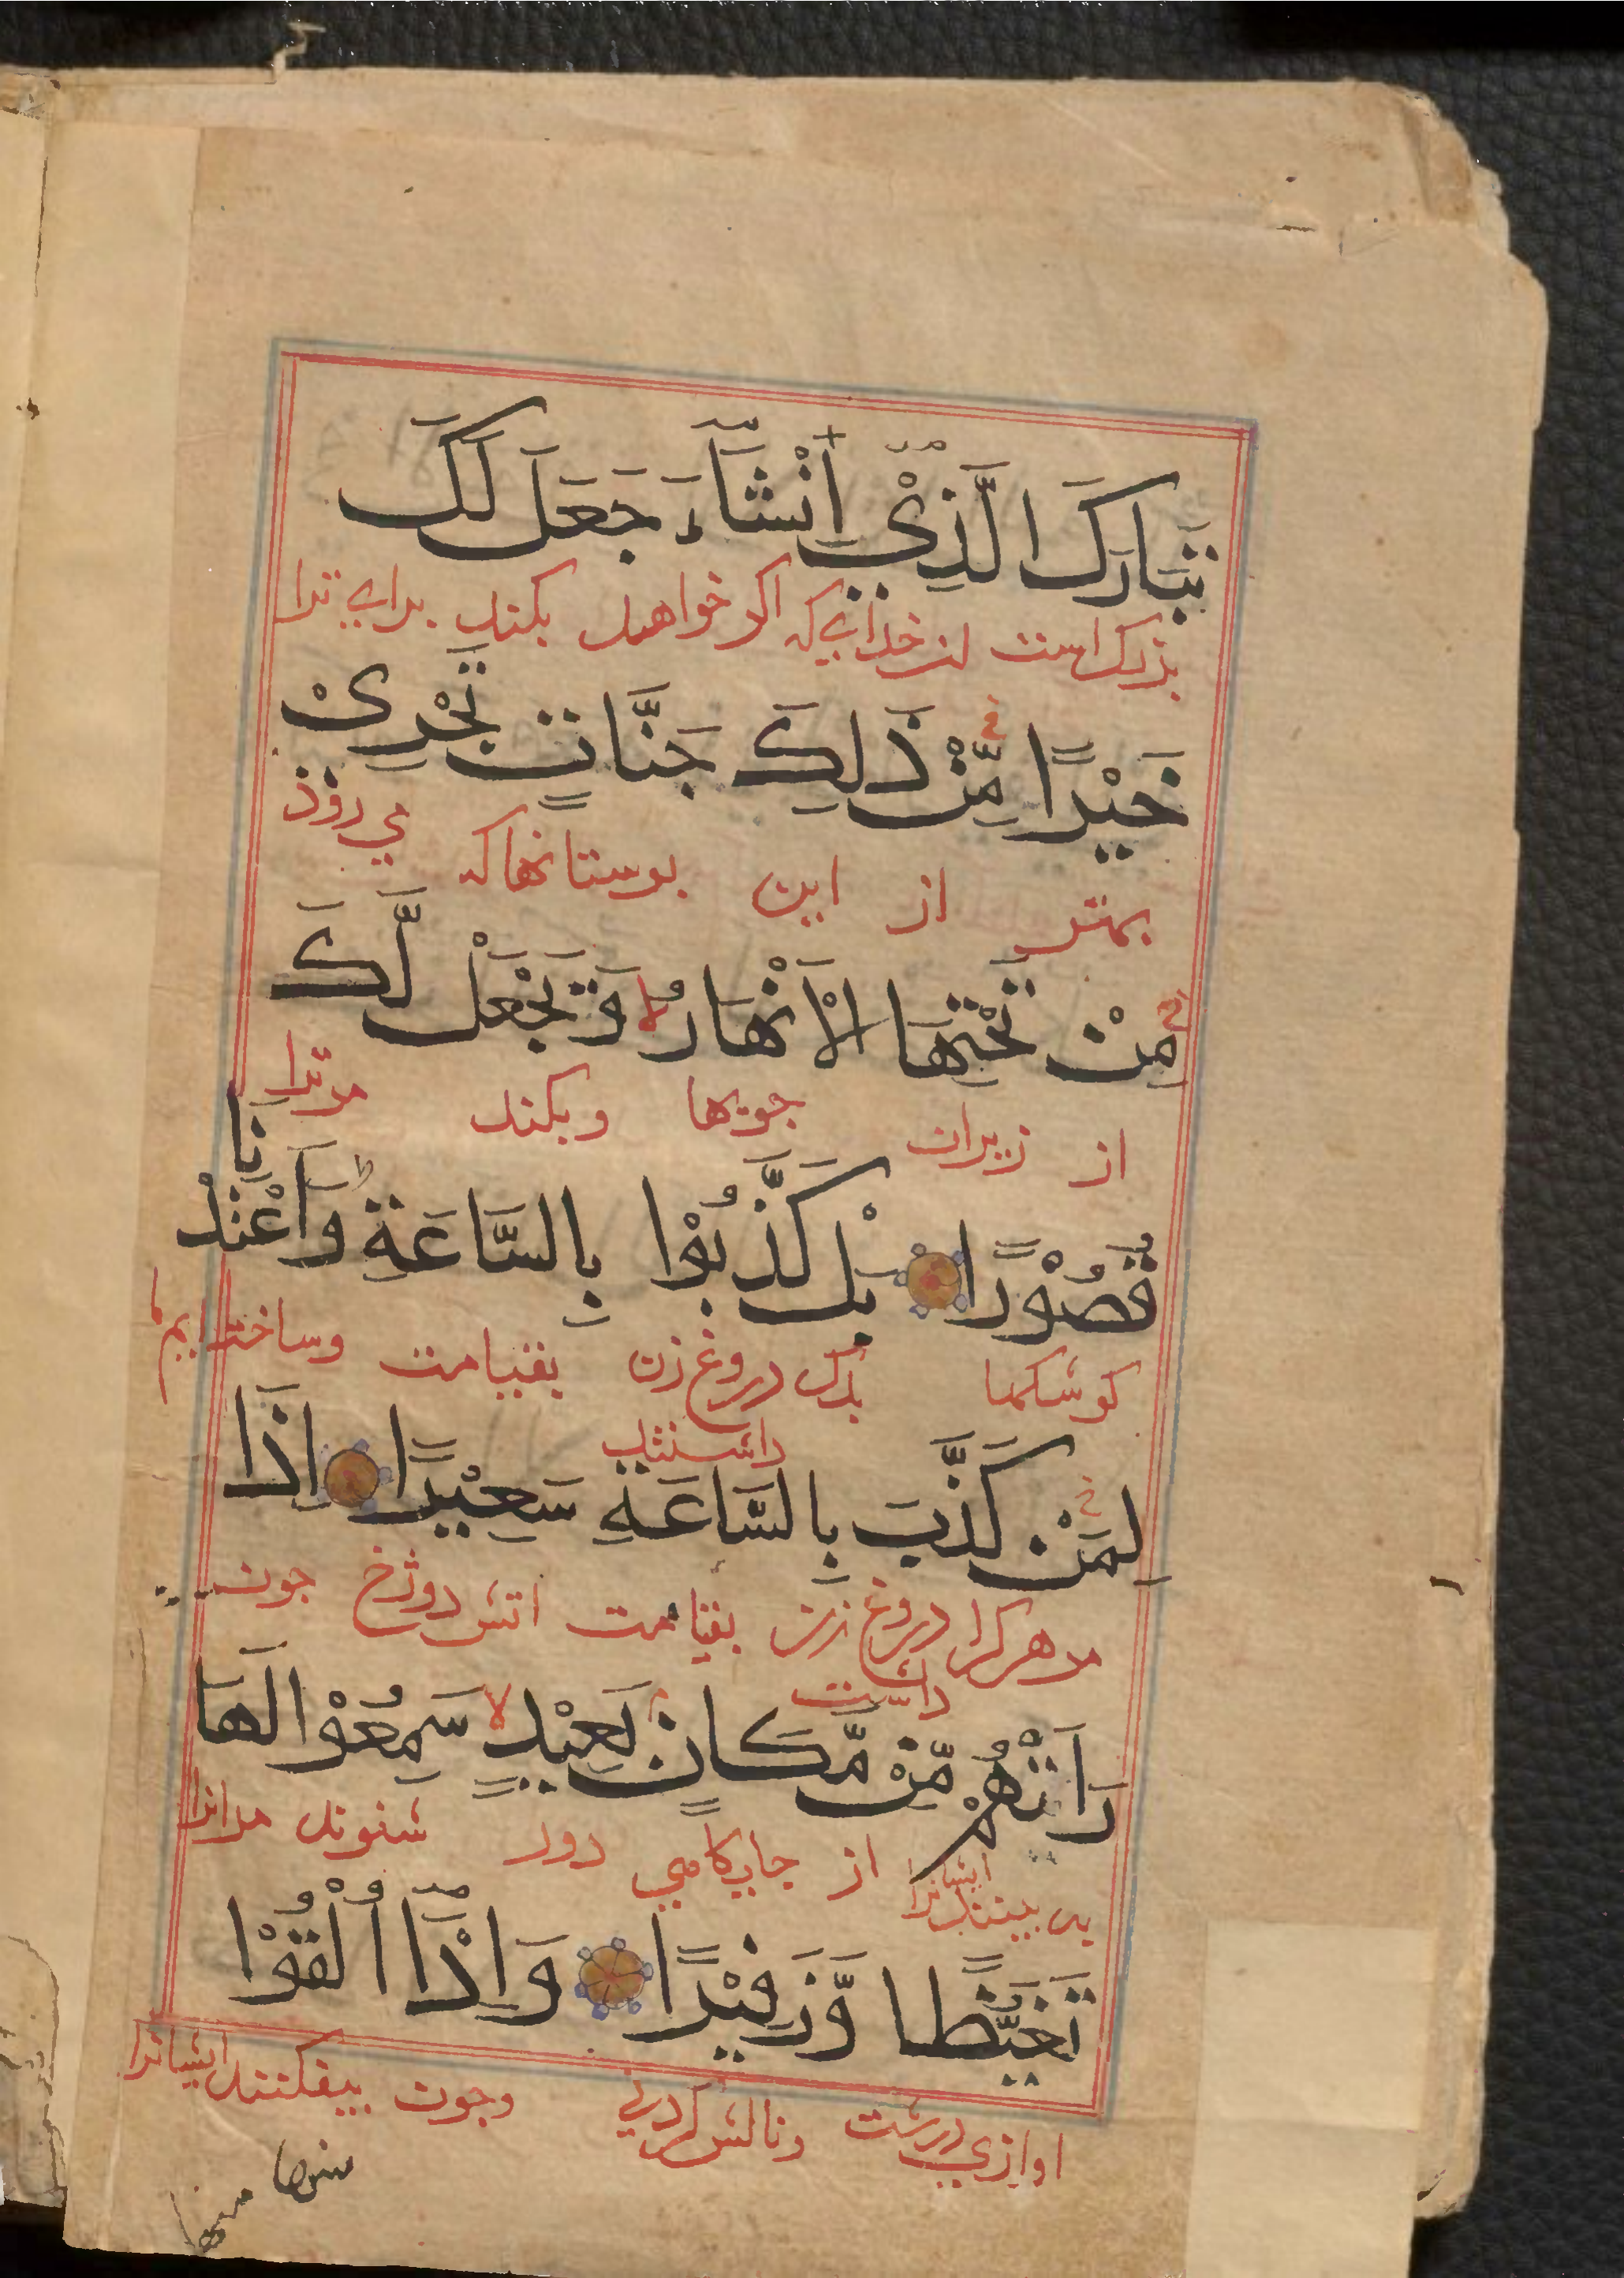 تَبَارَكَ الَّذِيْ اِنْشَآءَ جَعَلَ لَكَ
بزرك است ان خدايي كه اكر خواهد بكند براي ترا
خَيْرًا مِّنْ ذَلِكَ جَنَّاتٍ تَجْرِىْ
بهتر از اين بوستانها كه مي رود
مِنْ تَحْتِهَا الْاَنْهَارُ وَيَجْعَلْ لَّكَ
از زيران جويها وبكند مر ترا
قُصُوْرًا بَلْ كَذَّبُوْا بِالسَّاعَةِ وَاَعْتَدْنَا
كوشكها بلك دروغ زن داشتند بقيامت وساخته ايم ما
لِمَنْ كَذَّبَ بِالسَّاعَةِ سَعِيْرًا اِذَا
مر هر كرا دروغ زن داشت بقيامت اتش دوزخ جون
رَاَتْهُمْ مِّنْ مَّكَانٍ بَعِيْدٍ لا سَمِعُوْا لَهَا
به بينند ايشانرا از جايكاهي دور شنوند مر انرا
تَغَيُّظًا وَّزَفِيْرًا وَاِذَآ اُلْقُوْا
اوازي درشت ونالش كردني وجون بيفكنند ايشانرا
منها
منها